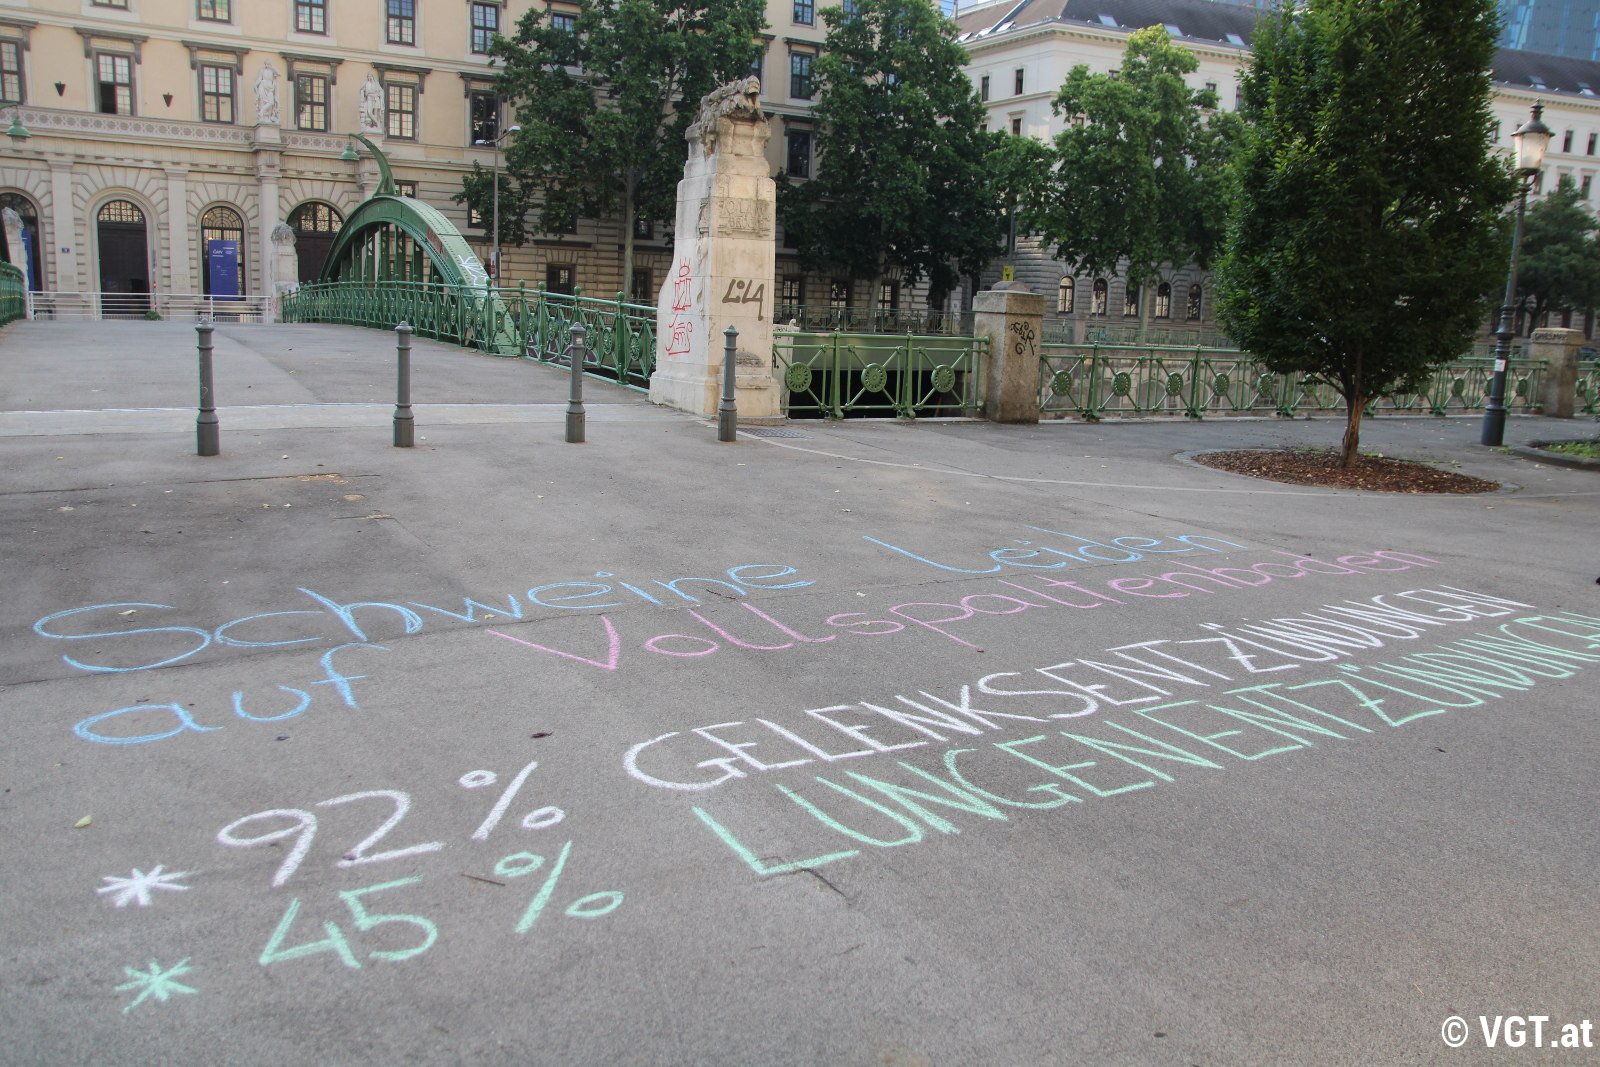 Schweine leiden
auf Vollspaltenboden
* 92% GELENKSENTZÜNDUNGEN
* 45% LUNGENENTZÜNDUNGEN
LiLA
© VGT.at